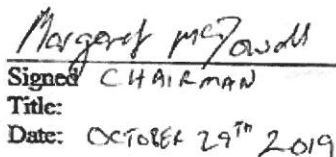 Margaret McDowall
Signed CHAIRMAN
Title:
Date: OCTOBER 29TH 2019